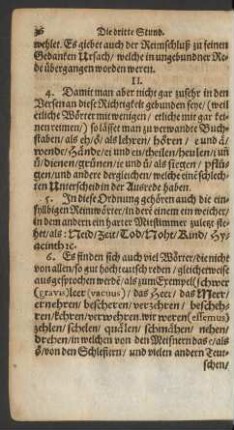 36 Die dritte Stund.
wehlet. Es giebet auch der Reimschluß zu seinen
Gedanken Ursach / welche in ungebundner Re-
de übergangen worden weren.
II.
4. Damit man aber nicht gar zusehr in den
Versen an diese Richtigkeit gebunden seye / (weil
etliche Wörter mit wenigen / etliche mit gar kei-
nen reimen /) so lässet man zu verwandte Buch-
staben / als eh / ö / als lehren / hören / e und ä /
wende / Hände / ei und eu / heilen / heulen /
ü / dienen / grünen / ie und ü als siegen / pflü-
gen / und andere dergleichen / welche eine schlech-
ten Unterscheid in der Ausrede haben.
5. In diese Ordnung gehören auch die ein-
syllbigen Reimwörter / in den einem ein weicher /
in dem andern ein harter Mitstimmer zuletzt ste-
het / als: Neid / Zeit / Tod / Noht / Kind / Hy-
acinth ꝛc.
6. Es finden sich auch viel Wörter / die nicht
von allen / so gut hochteutsch reden / gleicherweise
ausgesprochen werdē / als zum Exempel / schwer
(gravis) leer (vacuus) / das Heer / das Meer /
ernehren / bescheren / verzehren / bescheh-
ren / kehren / verwehren. wir weren (essemus)
zehlen / schelen / quälen / schmähen / nehen /
drehen / in welchen von den Meisnern das e / als
ö / von den Schlesiern / und vielen andern Teut-
schen /